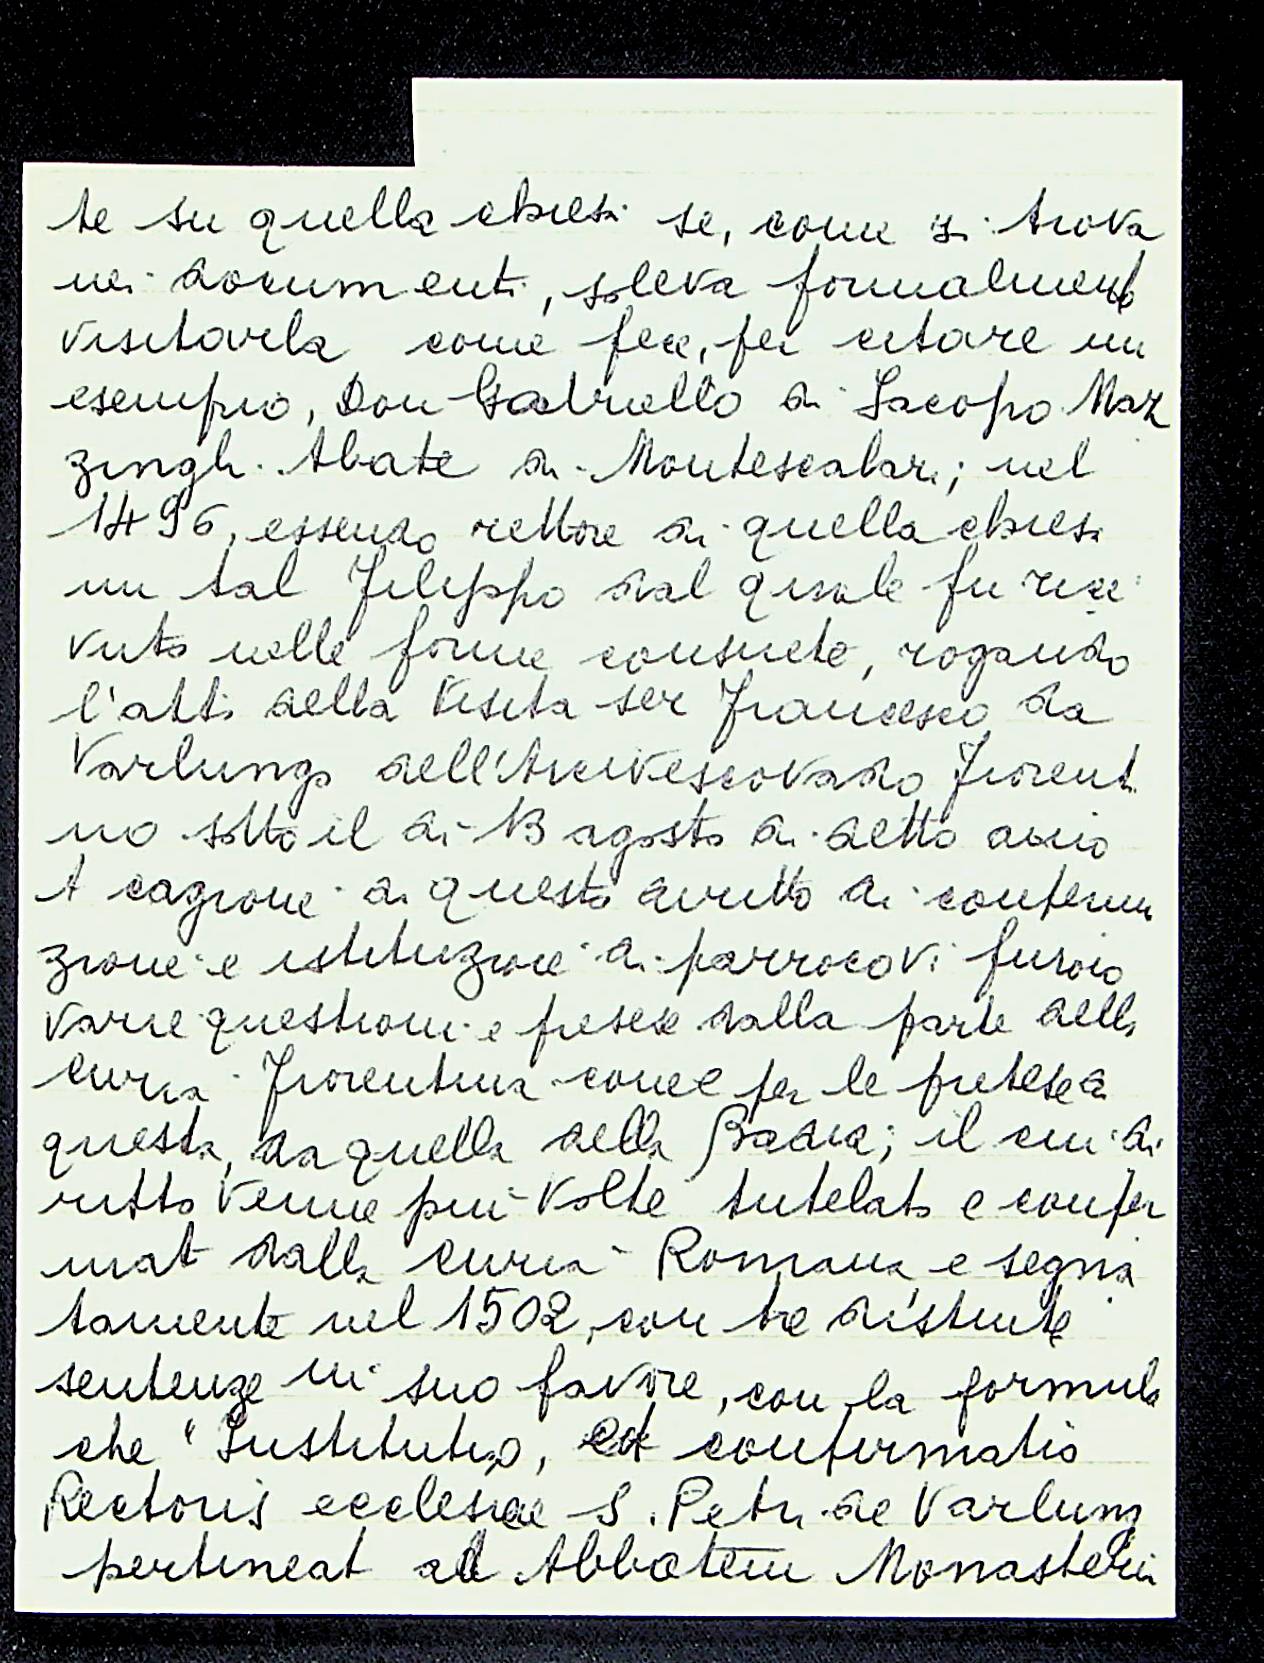 te su quella chiesa se, come si trova
nei documenti, soleva formalmente
visitarla come fece, per citare un
esempio, Don Gabriello di Iacopo Maz
zinghi Abate di Montescalari; nel
1496, essendo rettore di quella chiesa
un tal Filippo dal quale fu rice
vuto nelle forme consuete, rogando
l'atto della visita ser Francesco da
Varlungo dell'Arcivescovado Fiorenti
no sotto il di 13 agosto di detto anno
A cagione di questo diritto di conferma
zione e istituzione di parroco vi furono
varie questioni e pretese dalla parte della
curia Fiorentina come per le pretese di
questa, da quella della Badia; il cui di
ritto venne più volte tutelato e confer
mato dalla curia Romana e segna
tamente nel 1502, con tre distinte
sentenze in suo favore, con la formula
che "Institutio, et confirmatio
Rectoris ecclesiae S. Petri de Varlung
pertineat ad Abbatem Monasterii